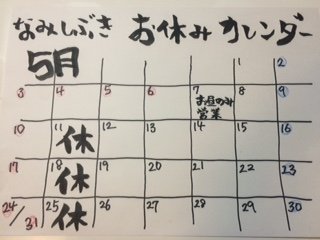 なみしぶき お休みカレンダー
5月
1 2
3 4 5 6 7 8 9
お昼のみ
営業
10 11 12 13 14 15 16
休
17 18 19 20 21 22 23
休
24/31 25 26 27 28 29 30
休